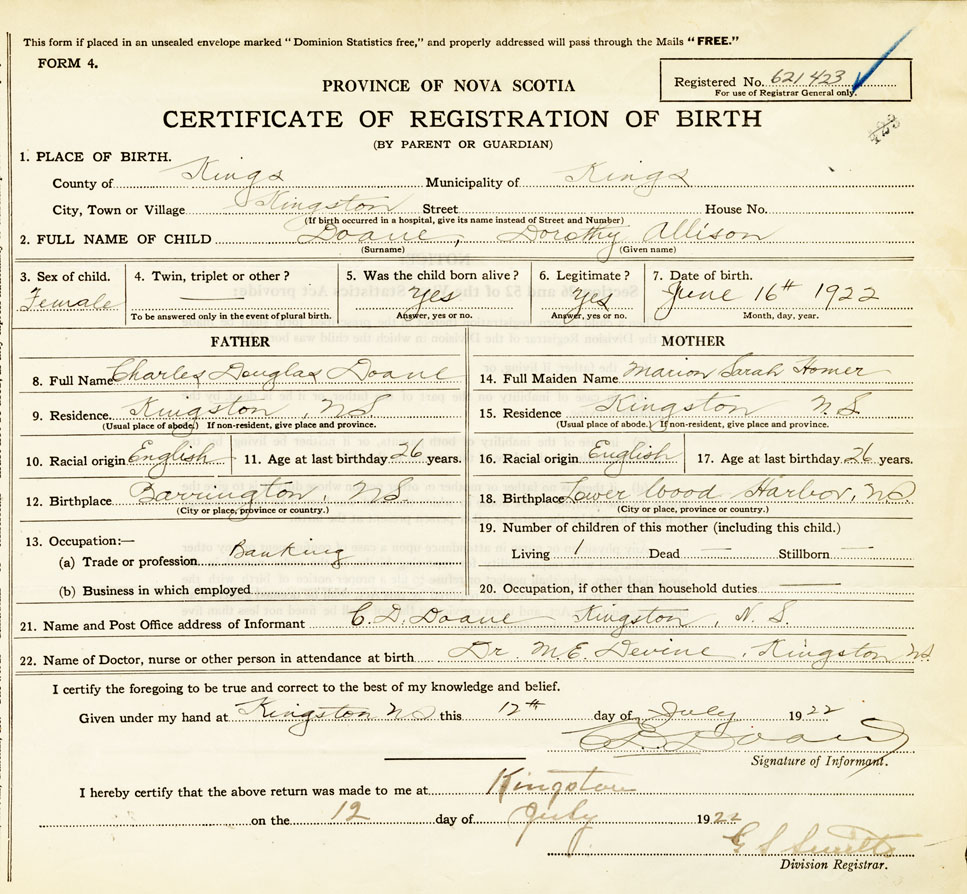 This form if placed in an unsealed envelope marked "Dominion Statistics free," and properly addressed will pass through the Mails "FREE."
FORM 4.
Registered No. 621423
For use of Registrar General only.
423
PROVINCE OF NOVA SCOTIA
CERTIFICATE OF REGISTRATION OF BIRTH
(BY PARENT OR GUARDIAN)
1. PLACE OF BIRTH.
County of Kings Municipality of Kings
City, Town or Village Kingston Street House No.
(If birth occurred in a hospital, give its name instead of Street and Number)
2. FULL NAME OF CHILD Doane, Dorothy Allison
(Surname) (Given name)
3. Sex of child. 4. Twin, triplet or other? 5. Was the child born alive? 6. Legitimate? 7. Date of birth.
Female — Yes Yes June 16th 1922
To be answered only in the event of plural birth. Answer, yes or no. Answer, yes or no. Month, day, year.
FATHER MOTHER
8. Full Name Charles Douglas Doane 14. Full Maiden Name Marion Sarah Homer
9. Residence Kingston, N.S. 15. Residence Kingston N.S.
(Usual place of abode.) If non-resident, give place and province. (Usual place of abode.) If non-resident, give place and province.
10. Racial origin English 11. Age at last birthday 26 years. 16. Racial origin English 17. Age at last birthday 26 years.
12. Birthplace Barrington, N.S. 18. Birthplace Lower Wood Harbor, N.S.
(City or place, province or country.) (City or place, province or country.)
13. Occupation:— 19. Number of children of this mother (including this child.)
(a) Trade or profession Banking Living 1 Dead — Stillborn —
(b) Business in which employed — 20. Occupation, if other than household duties —
21. Name and Post Office address of Informant C. D. Doane Kingston, N.S.
22. Name of Doctor, nurse or other person in attendance at birth Dr. M.E. Devine, Kingston NS
I certify the foregoing to be true and correct to the best of my knowledge and belief.
Given under my hand at Kingston NS this 12th day of July 1922
C D Doane
Signature of Informant.
I hereby certify that the above return was made to me at Kingston
on the 12 day of July 1922
G S
Division Registrar.